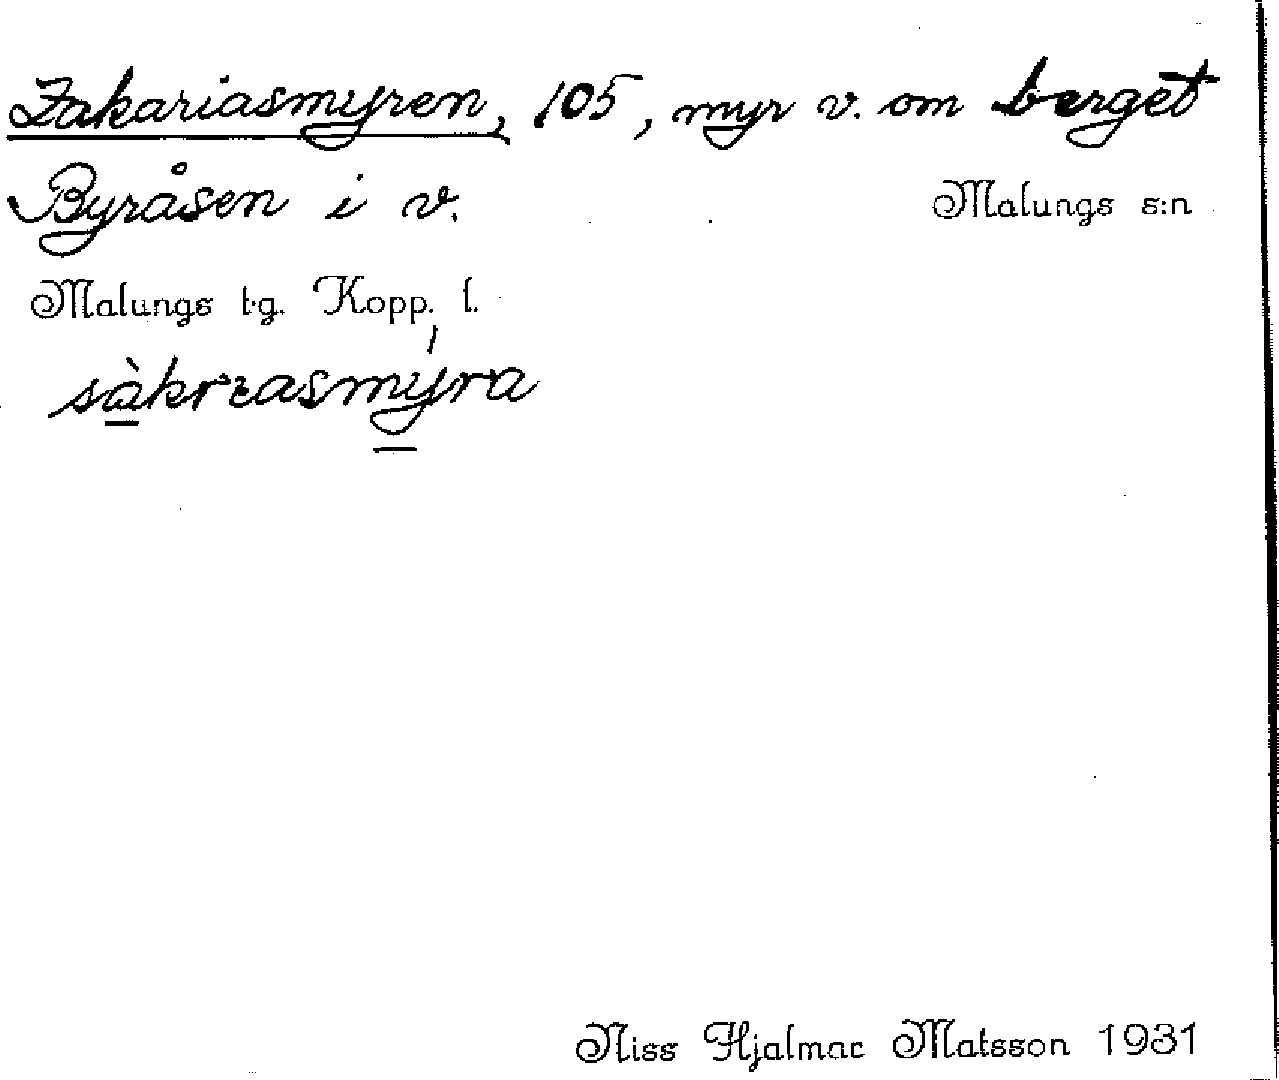 Zakariasmyren, 105, myr v. om berget
Byråsen i v.
Malungs s:n
Malungs tg. Kopp. l.
sàkreasmýra
Niss Hjalmar Matsson 1931